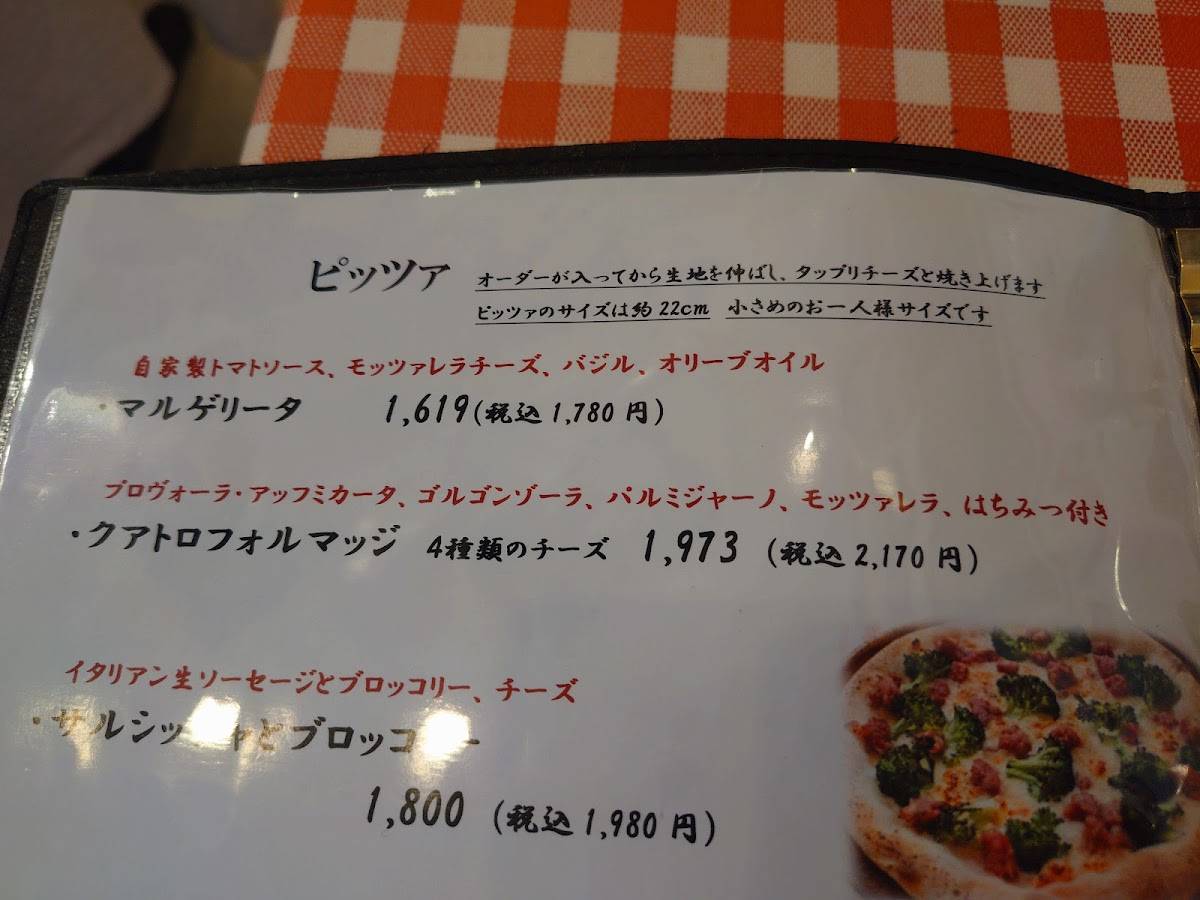 ピッツァ オーダーが入ってから生地を伸ばし、タップリチーズと焼き上げます
ピッツァのサイズは約22cm 小さめのお一人様サイズです
自家製トマトソース、モッツァレラチーズ、バジル、オリーブオイル
・マルゲリータ 1,619(税込1,780円)
プロヴォーラ・アッフミカータ、ゴルゴンゾーラ、パルミジャーノ、モッツァレラ、はちみつ付き
・クアトロフォルマッジ 4種類のチーズ 1,973 (税込2,170円)
イタリアン生ソーセージとブロッコリー、チーズ
・サルシッチャとブロッコリー
1,800 (税込1,980円)